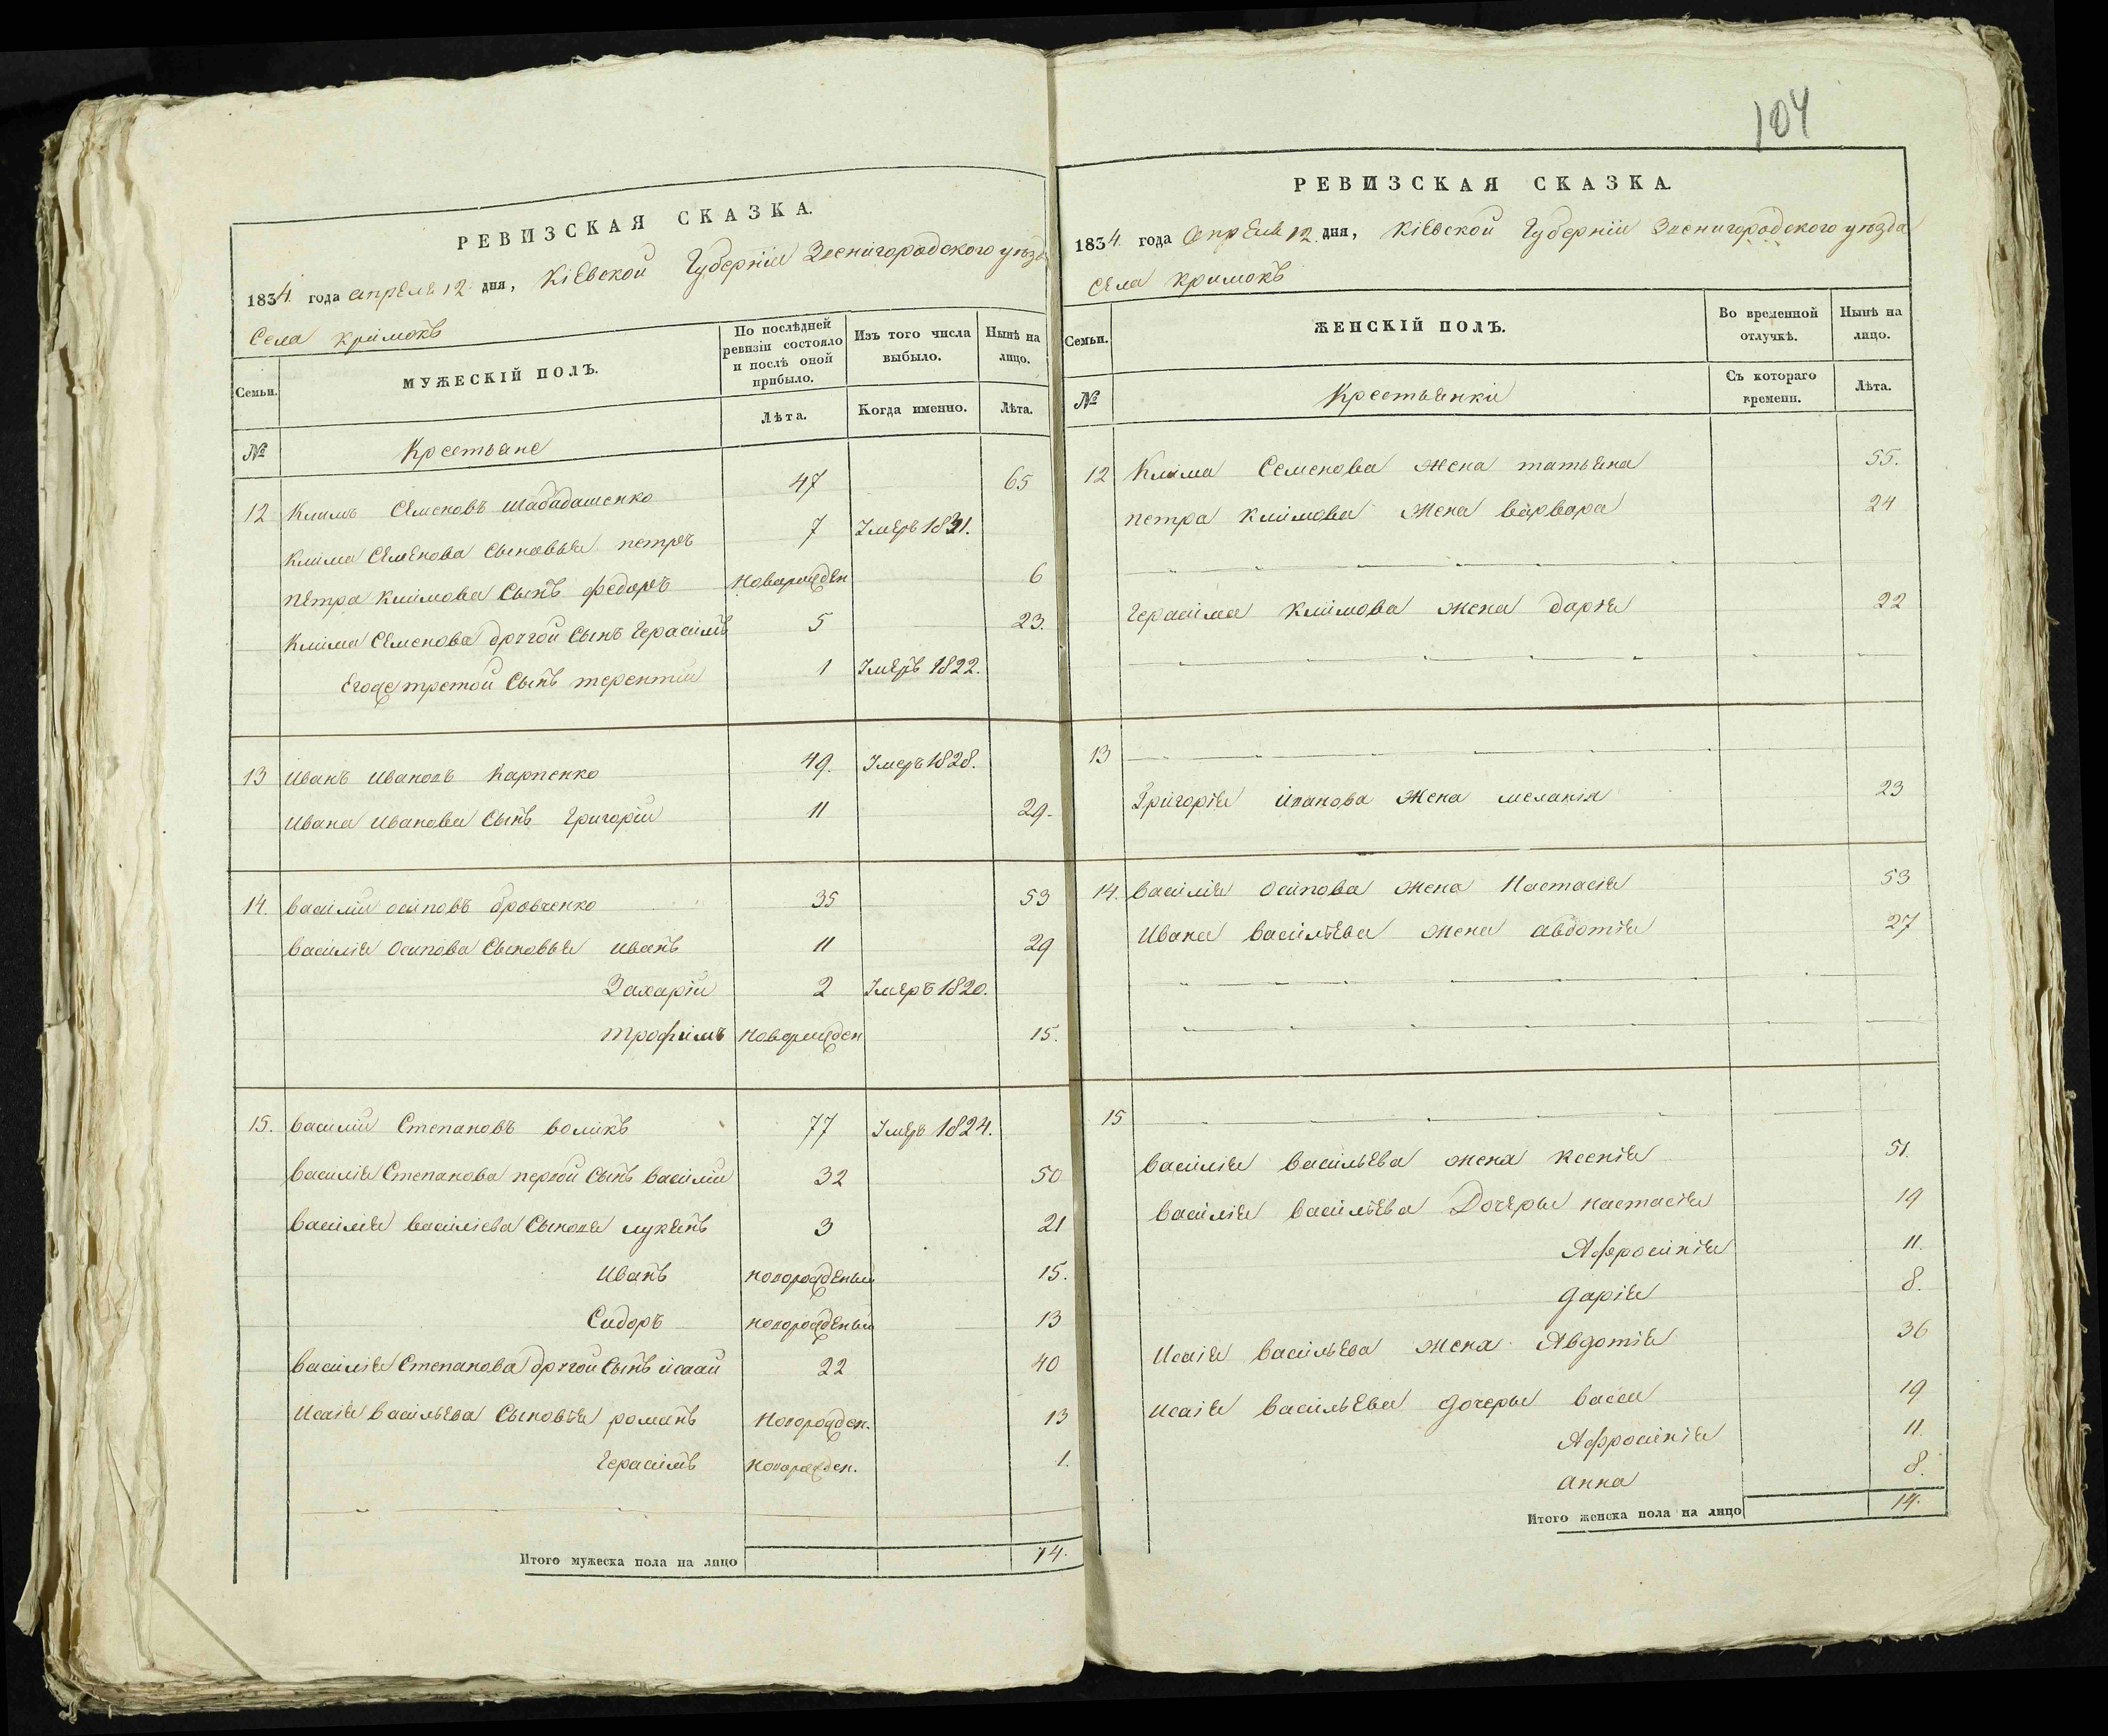 РЕВИЗСКАЯ СКАЗКА.
1834. года апреля 12. дня, Кіевской Губерніи Звенигородского уезда
Села кримокъ
Семьи. МУЖЕСКІЙ ПОЛЪ. По послѣдней ревизіи состояло и послѣ оной прибыло. Изъ того числа выбыло. Нынѣ на лицо.
№ Крестьяне Лѣта. Когда именно. Лѣта.
12 Климъ Семеновъ шабадашенко 47 65
Клима Семенова Сыновья петръ 7 Умеръ 1831.
Петра климова Сынъ федоръ новорожден 6
Клима Семенова другой Сынъ Герасимъ 5 23.
Егоже третой Сынъ терентій 1 Умеръ 1822.
13 Иванъ Ивановъ Карпенко 49. Умеръ 1828.
Ивана Иванова Сынъ Григорій 11 29.
14. василій осиповъ бровченко 35 53
василія Осипова Сыновья иванъ 11 29
Захарій 2 Умеръ 1820.
трофимъ новорожден 15.
15. василій Степановъ воликъ 77 Умеръ 1824.
василія Степанова первой Сынъ василій 32 50
василія василіева Сыновя лукянъ 3 21
иванъ новорожденый 15.
Сидоръ новорожденый 13
василія Степанова другой Сынъ ісаай 22 40
Исаія васильева Сыновья романъ новорожден. 13
Герасимъ новорожден. 1.
Итого мужеска пола на лицо 14.
104
РЕВИЗСКАЯ СКАЗКА.
1834. года апреля 12. дня, Кіевской Губерніи Звенигородского уезда
Села кримокъ
Семьи. ЖЕНСКІЙ ПОЛЪ. Во временной отлучкѣ. Нынѣ на лицо.
№ Крестьянки Съ котораго времени. Лѣта.
12 Клима Семенова жена татьяна 55.
петра климова жена варвара 24
Герасима климова жена дарія 22
13
Григорія іванова жена меланія 23
14. василія осипова жена Настасія 53
Ивана васильева жена авдотія 27
15
василія васильева жена ксенія 51.
василія васильева Дочеры настасія 19
Афросинія 11.
дарія 8.
Исаія васильева жена Авдотія 36
Исаія васильева дочеры васса 19
Афросинія 11.
анна 8.
Итого женска пола на лицо 14.